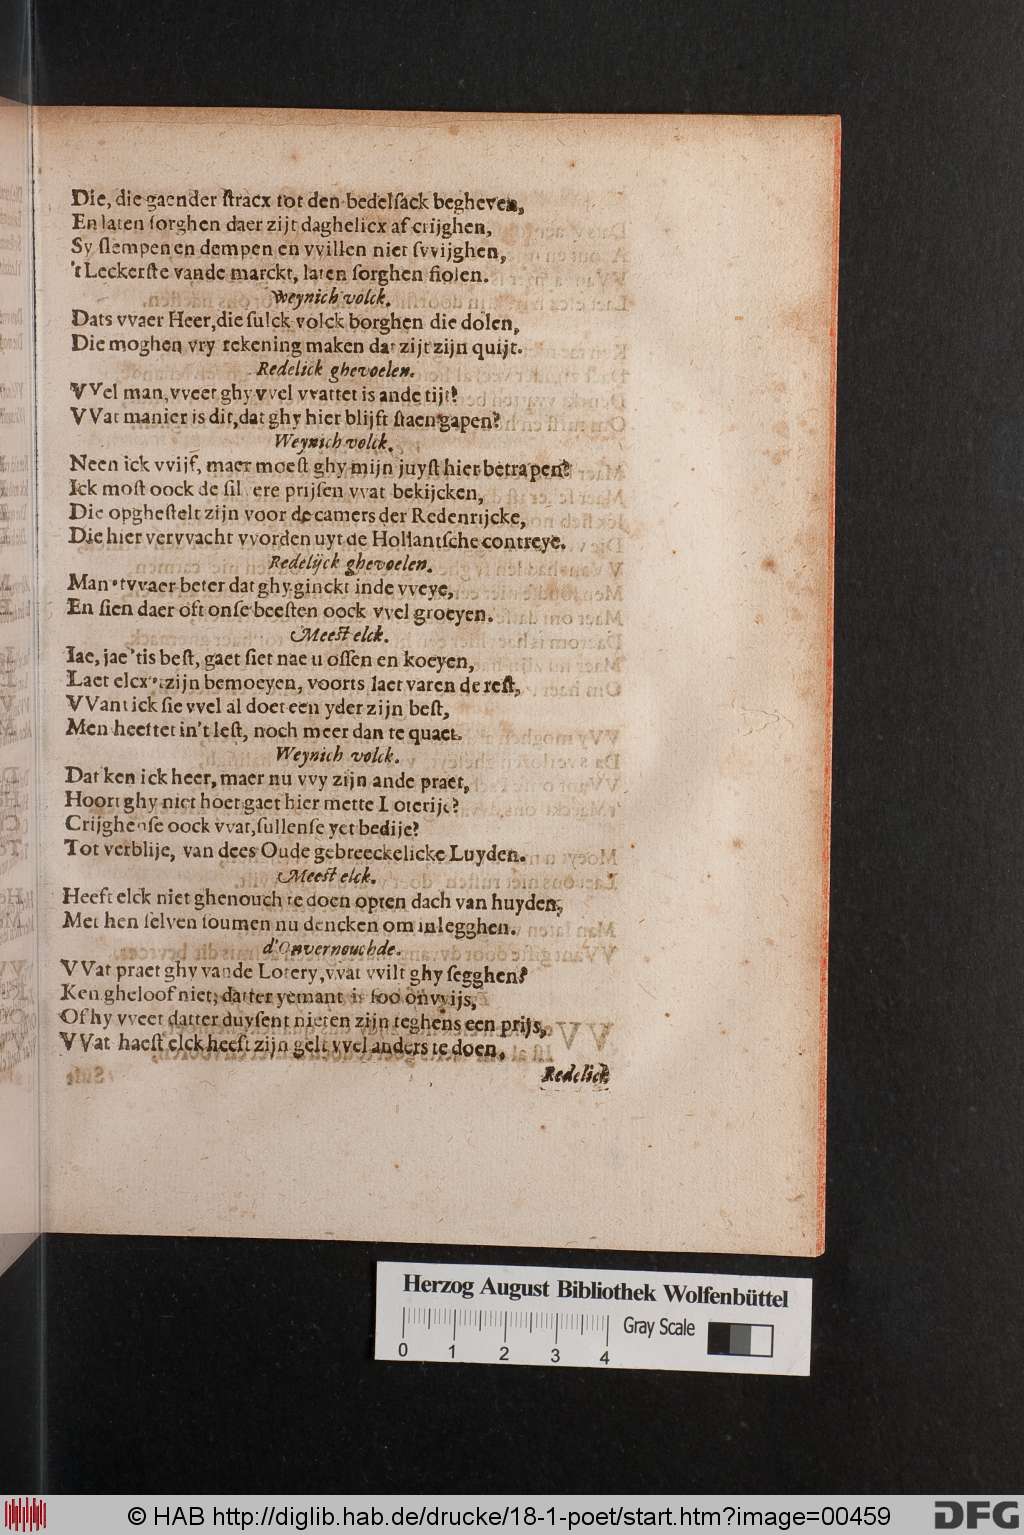 Die, die gaender ſtracx tot den bedelſack begheven,
En laten ſorghen daer zijt daghelicx af crijghen,
Sy ſlempen en dempen en vvillen niet ſvvijghen,
't Leckerſte vande marckt, laten ſorghen fiolen.
Weynich volck.
Dats vvaer Heer, die ſulck volck borghen die dolen,
Die moghen vry rekening maken dat zijt zijn quijt.
Redelick ghevoelen.
VVel man, vveet ghy vvel vvattet is ande tijt?
VVat manier is dit, dat ghy hier blijft ſtaen gapen?
Weynich volck.
Neen ick vvijf, maer moeſt ghy mijn juyſt hier betrapen?
Ick moſt oock de ſil ere prijſen vvat bekijcken,
Die opgheſtelt zijn voor de camers der Redenrijcke,
Die hier vervvacht vvorden uyt de Hollantſche contreye.
Redelijck ghevoelen.
Man 'tvvaer beter dat ghy ginckt inde vveye,
En ſien daer oft onſe beeſten oock vvel groeyen.
Meeſt elck.
Iae, jae 'tis beſt, gaet ſiet nae u oſſen en koeyen,
Laet elcx 't zijn bemoeyen, voorts laet varen de reſt,
VVant ick ſie vvel al doet een yder zijn beſt,
Men heettet in't leſt, noch meer dan te quaet.
Weynich volck.
Dat ken ick heer, maer nu vvy zijn ande praet,
Hoort ghy niet hoet gaet hier mette Loterije?
Crijghenſe oock vvat, ſullenſe yet bedije?
Tot verblije, van dees Oude gebreeckelicke Luyden.
Meeſt elck.
Heeft elck niet ghenouch te doen opten dach van huyden,
Met hen ſelven ſoumen nu dencken om inlegghen.
d'Onvernouchde.
VVat praet ghy vande Lotery, vvat vvilt ghy ſegghen?
Ken gheloof niet, datter yemant is ſoo onvvijs,
Of hy vveet datter duyſent nieten zijn teghens een prijs,
VVat haeſt elck heeft zijn gelt vvel anders te doen.
Redelick
Herzog August Bibliothek Wolfenbüttel
Gray Scale
0 1 2 3 4
© HAB http://diglib.hab.de/drucke/18-1-poet/start.htm?image=00459
DFG